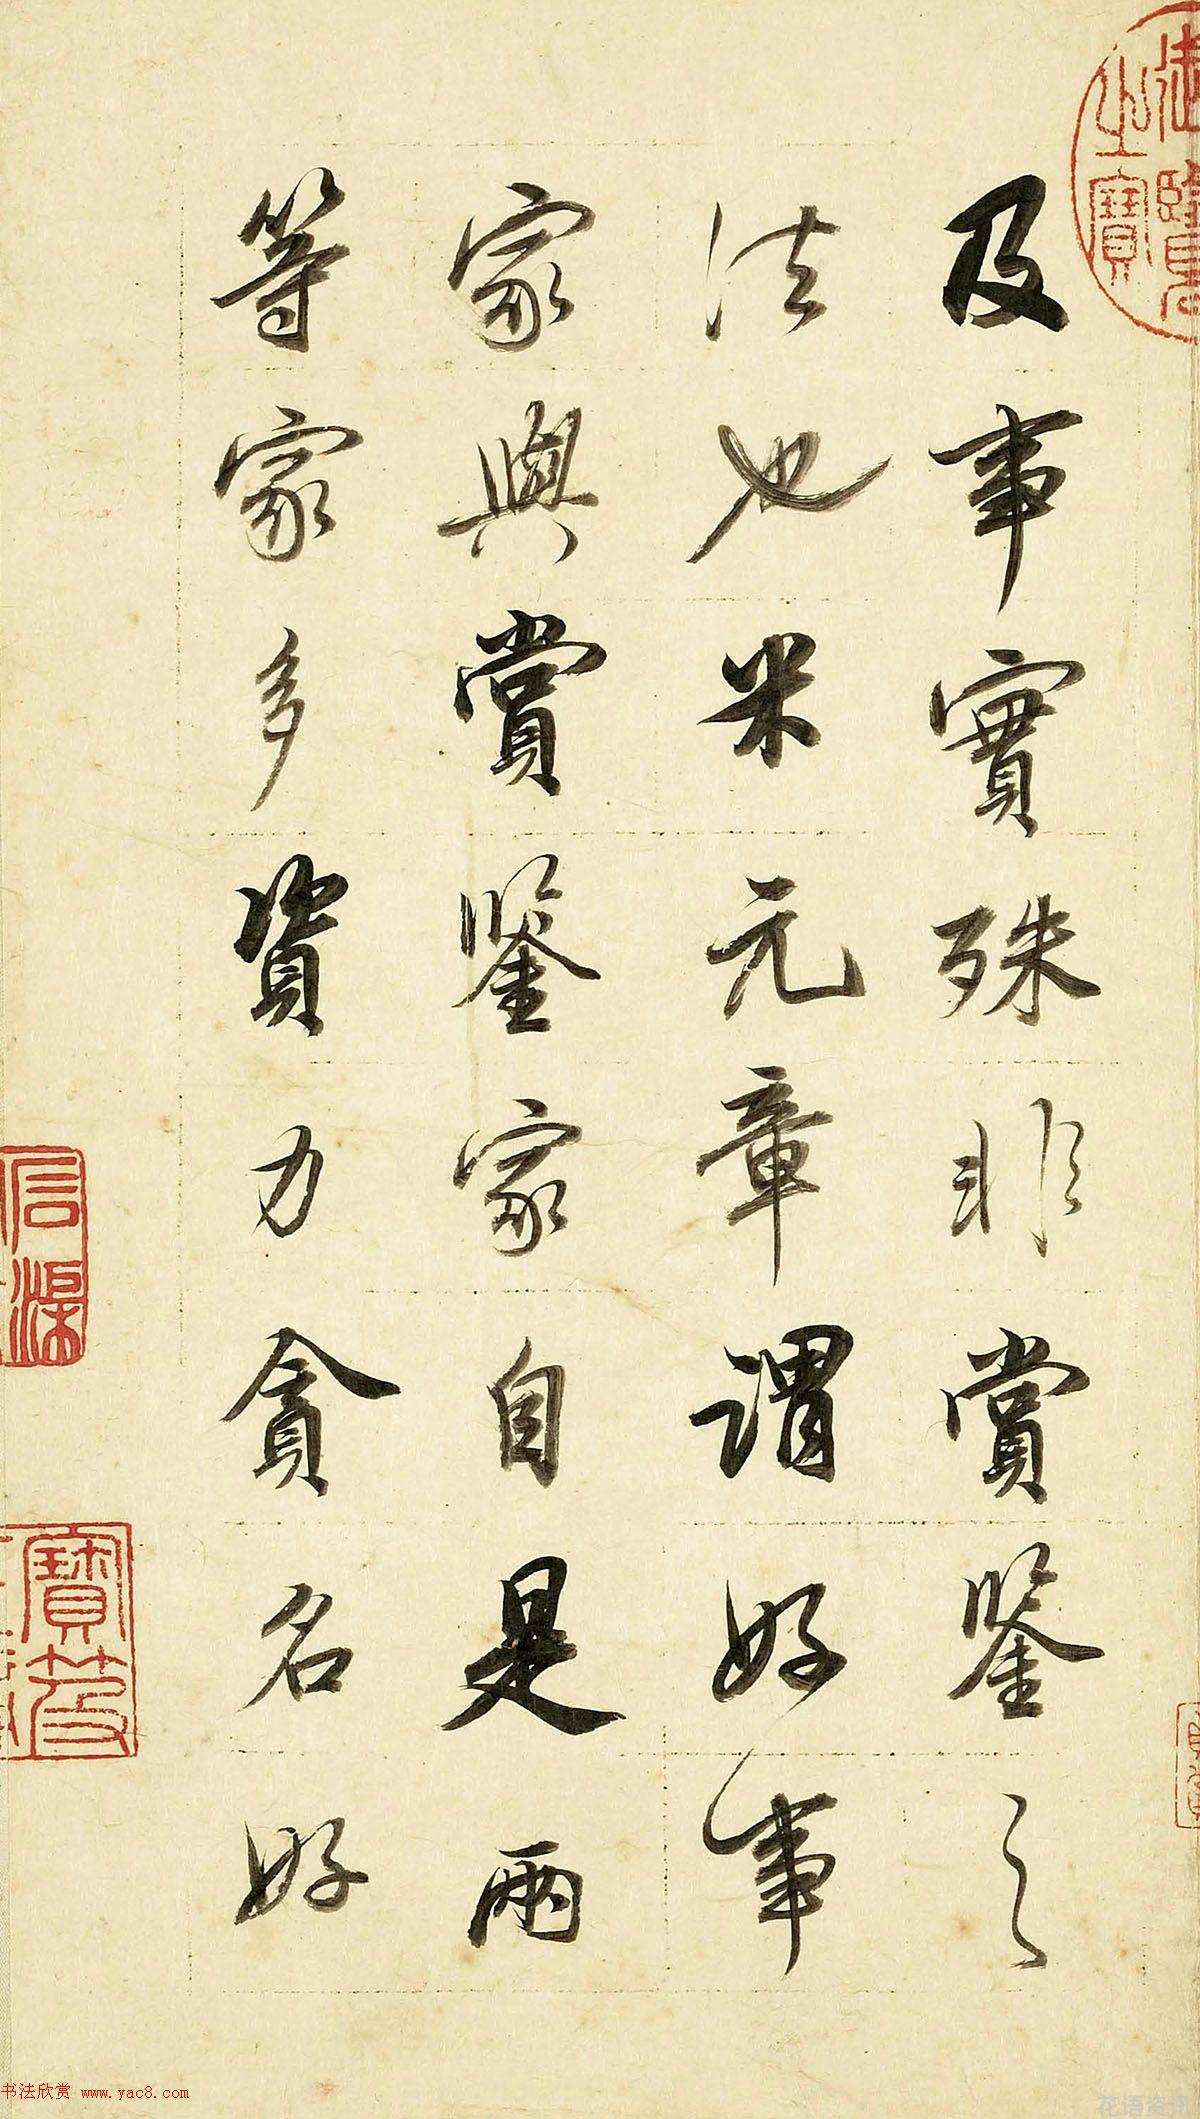 及事實殊非賞鑒之
法也米元章謂好事
家與賞鑒家自是兩
等家多資力貪名好
之寶
寶笈
书法欣赏 www.yac8.com
花语资讯